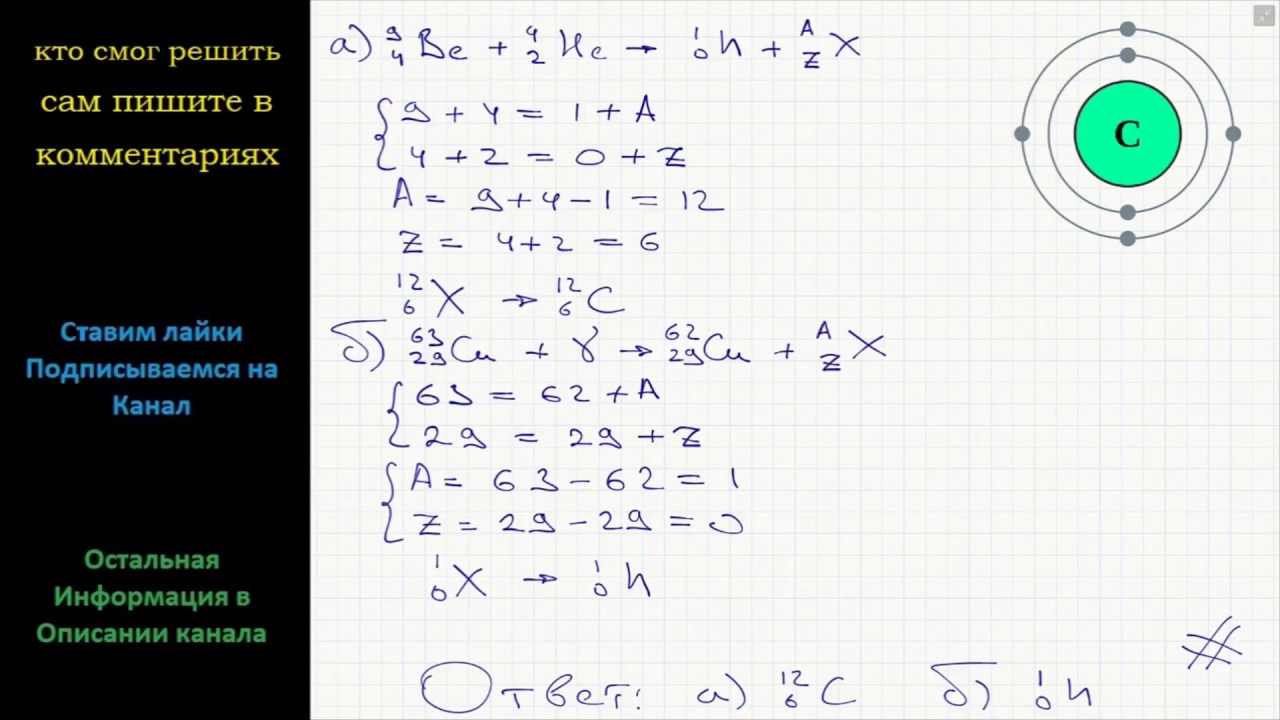 кто смог решить
сам пишите в
комментариях
Ставим лайки
Подписываемся на
Канал
Остальная
Информация в
Описании канала
а) ⁹₄Be + ⁴₂He → ¹₀n + ᴬ_Z X
{ 9 + 4 = 1 + A
4 + 2 = 0 + Z
A = 9 + 4 - 1 = 12
Z = 4 + 2 = 6
¹²₆X → ¹²₆C
б) ⁶³₂₉Cu + γ → ⁶²₂₉Cu + ᴬ_Z X
{ 63 = 62 + A
29 = 29 + Z
{ A = 63 - 62 = 1
Z = 29 - 29 = 0
¹₀X → ¹₀n
Ответ: а) ¹²₆C б) ¹₀n
C